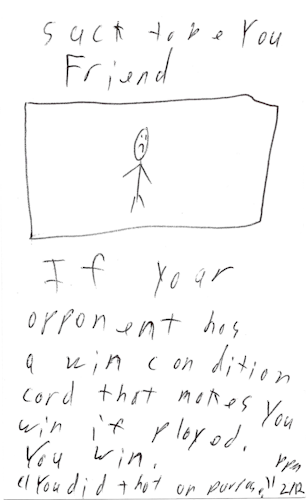 suck to be You
Friend
If your
opponent has
a win condition
card that makes you
win if played.
You win.
"You did that on purpose"